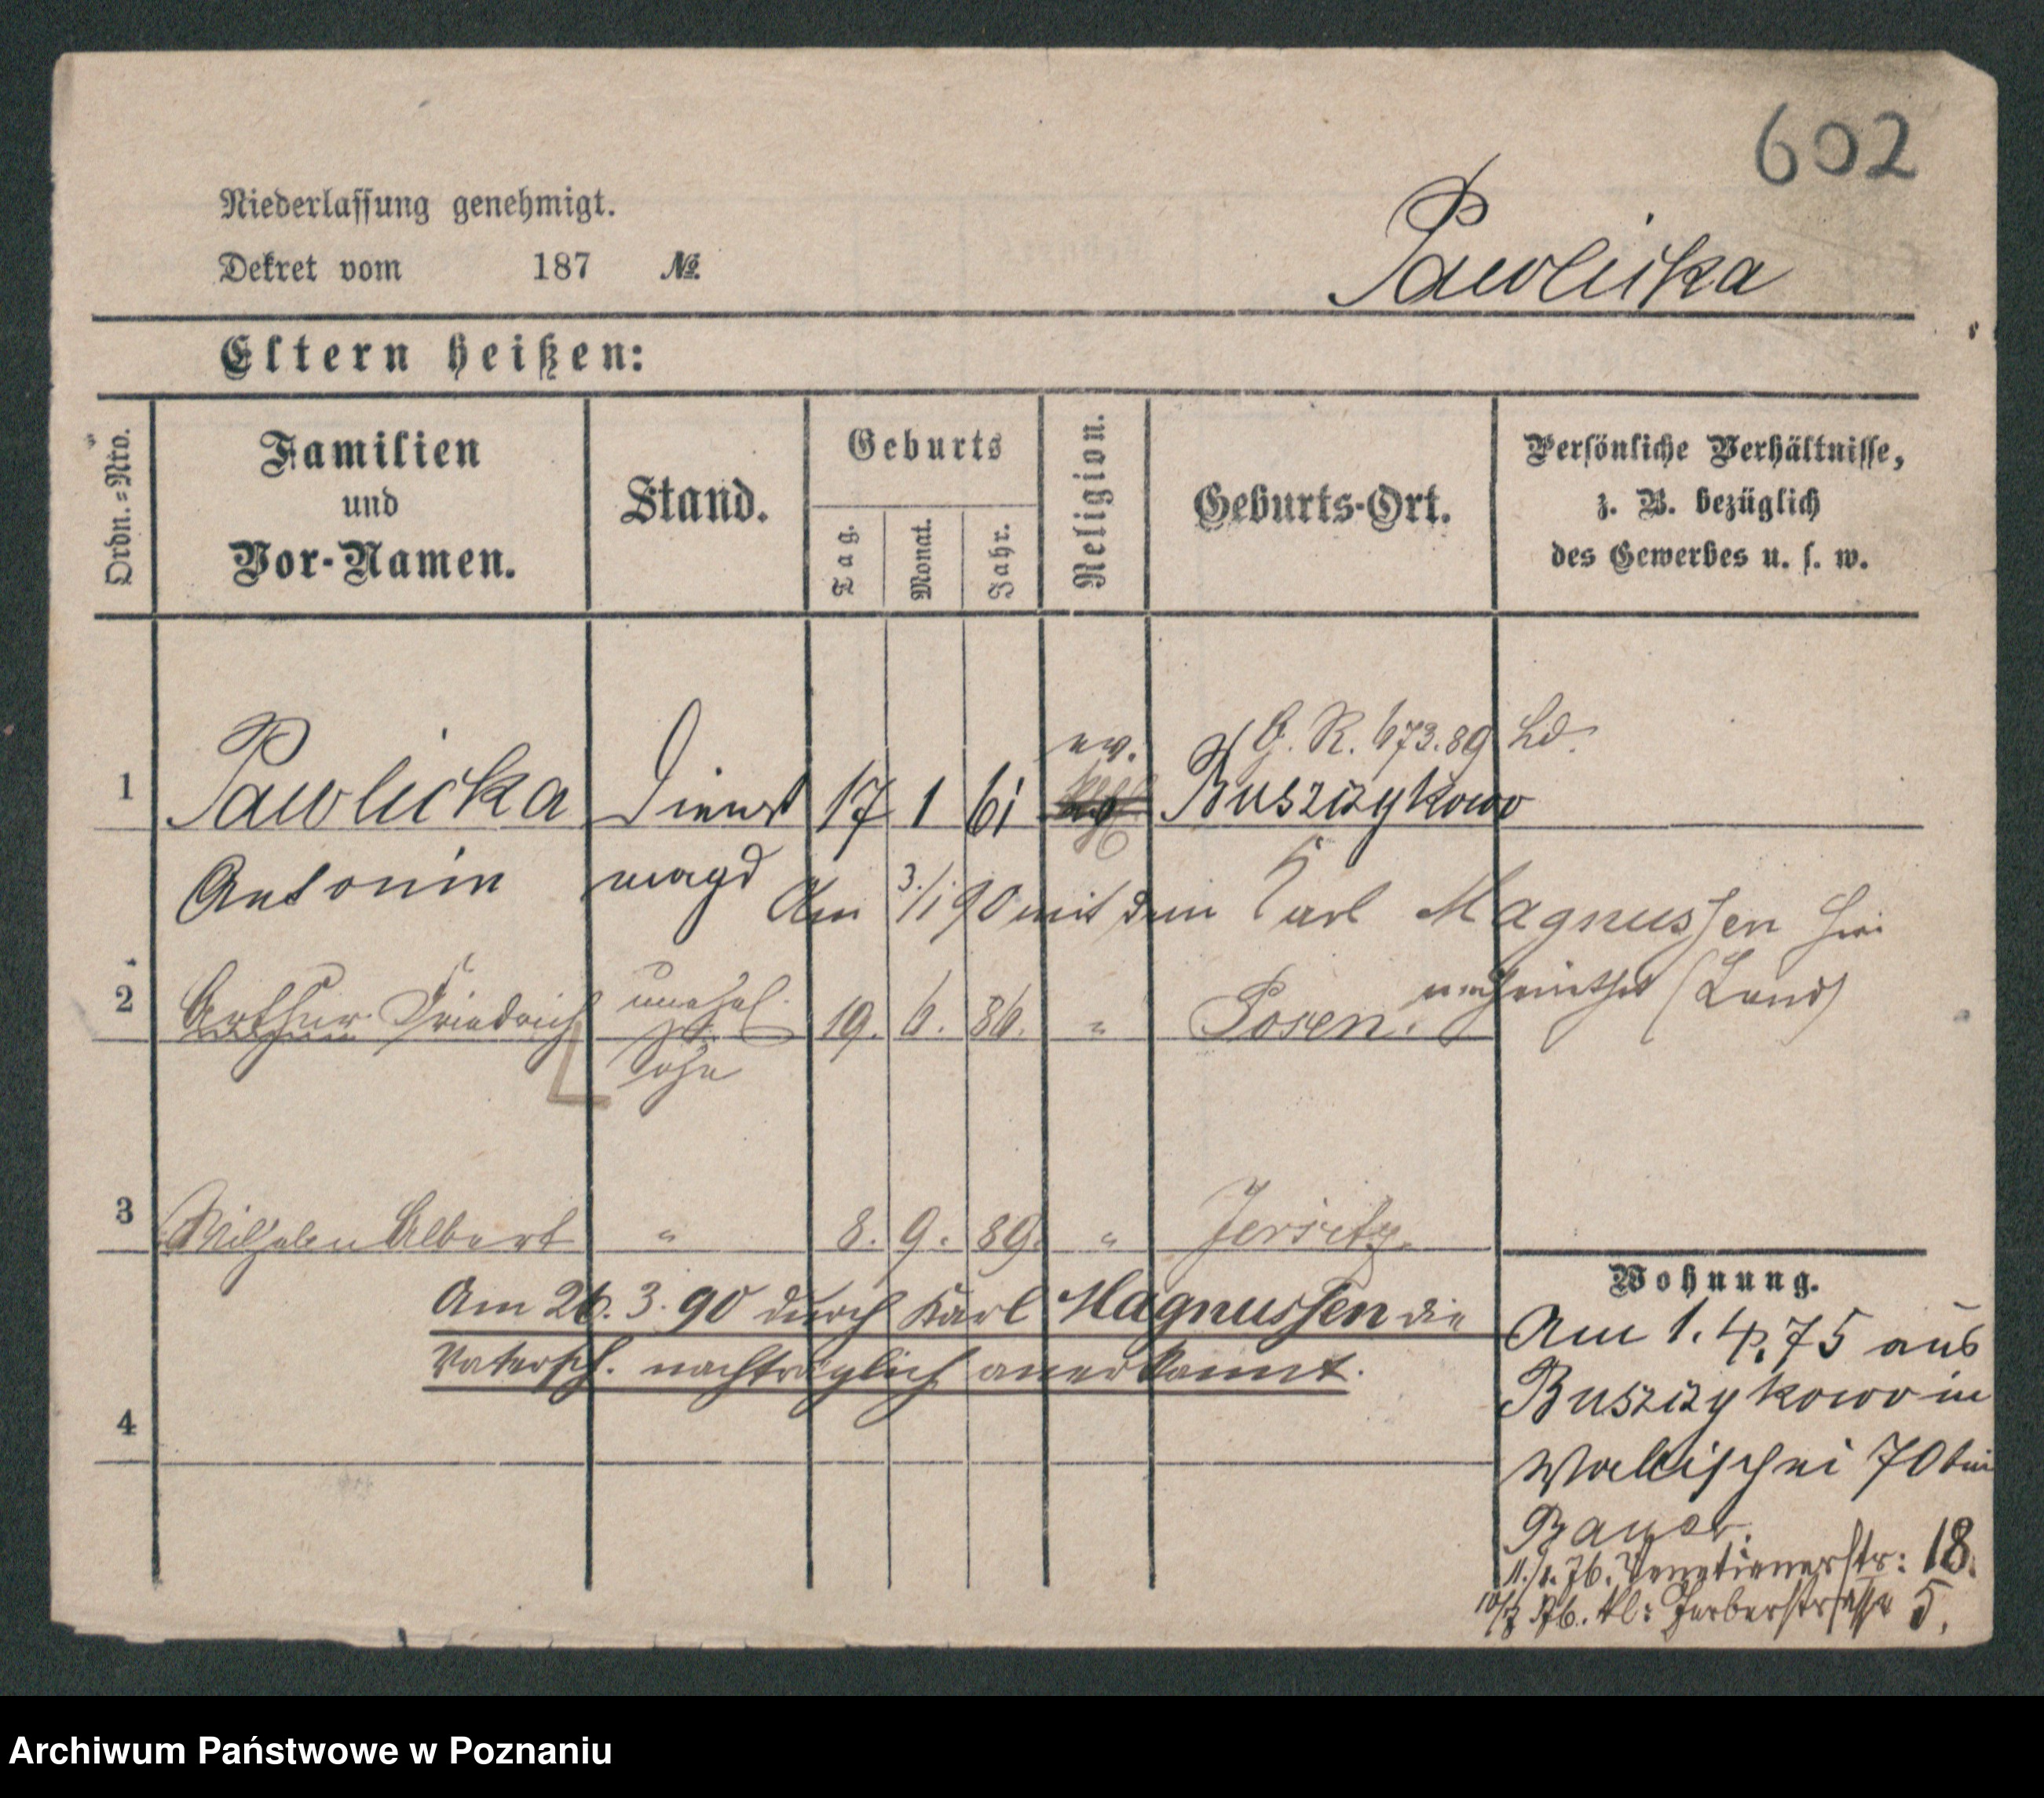 602
Niederlassung genehmigt.
Dekret vom 187 №
Pawlicka
Eltern heißen:
Ordn.=Nro.
Familien
und
Vor-Namen.
Stand.
Geburts
Tag.
Monat.
Jahr.
Religion.
Geburts-Ort.
Persönliche Verhältnisse,
z. B. bezüglich
des Gewerbes u. s. w.
ev. G. R. 673.89 Ld.
1 Pawlicka Dienst 17 1 61 Buszczykowo
Antonin magd
Am 3./1 90 mit dem Karl Magnussen hier
verheirathet (Land)
2 Arthur Friedrich unehel. 19. 6. 86. " Posen.
Sohn
3 Wilhelm Albert " 8. 9. 89. " Jersitz.
Am 26. 3. 90 durch Karl Magnussen die
Vatersch. nachträglich anerkannt.
4
Wohnung.
Am 1. 4. 75 aus
Buszczykowo in
Wallischei 70 bei
Bayer.
11./1. 76. Venetianerstr: 18.
10/7 76. kl: Gerberstrasse 5.
Archiwum Państwowe w Poznaniu